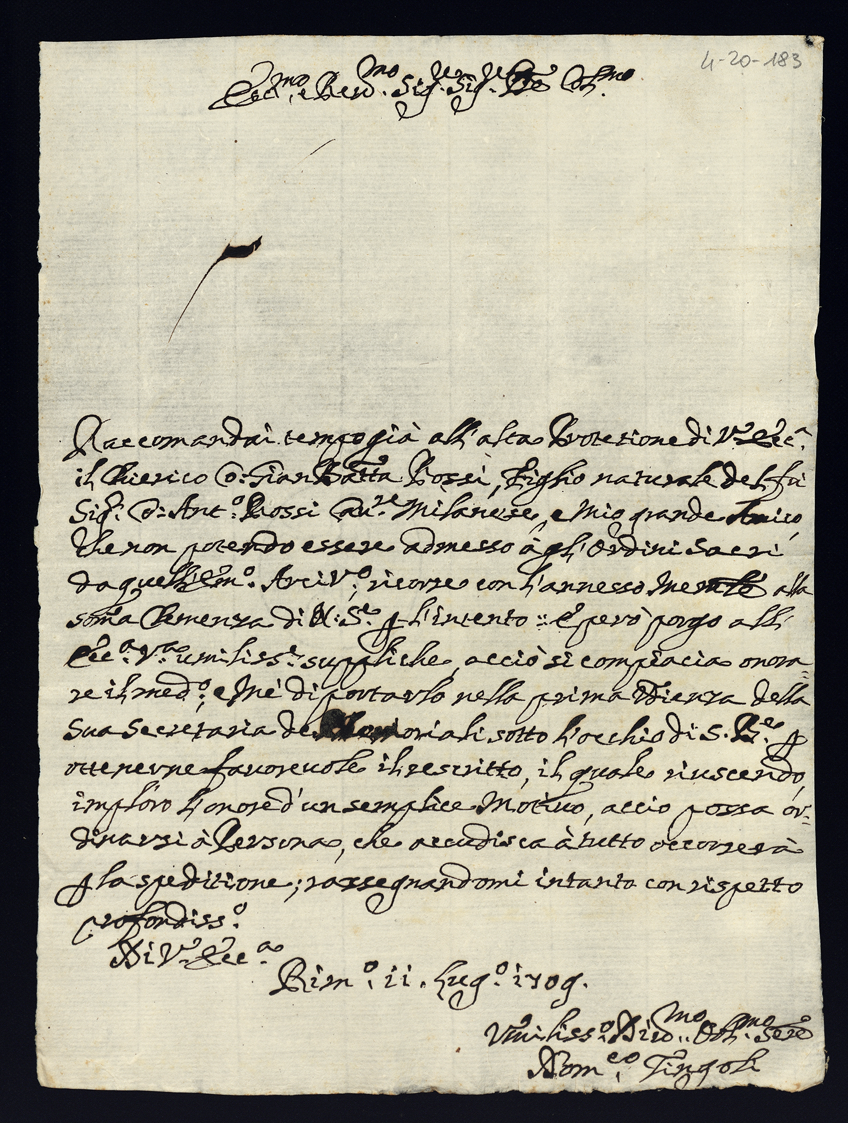 4-20-183
Ecc.mo e Rev.mo Sig.r Sig.r P.rone Col.mo
Raccomandai tempo già all'alta Protetione di V.ra Ecc.a
il Chierico D: Gian Batta Rossi, Figlio naturale del fù
Sig.r D: Ant.o Rossi Cau.re Milanese, e Mio grande Amico,
che non potendo essere admesso à gl'Ordini Sacri
da quell'Em.o Arciv.o, ricorre con l'annesso Memle alla
soma Clemenza di N: S.re p l'intento :: E però porgo all'
Ecc.a V.ra umiliss.e suppliche, acciò si compiacia onora=
re il med.o, e Me di portarlo nella prima Vdienza della
Sua Secretaria de Memoriali sotto l'occhio di S. B.ne p
ottenerne fauoreuole il rescritto, il quale riuscendo,
imploro l'onore d'un semplice Motiuo, accio possa or=
dinarsi à Persona, che accudisca à tutto occorrerà
p la speditione; rassegnandomi intanto con rispetto
profondiss.o
Di V.ra Ecc.a
Rim.o 11. Lug.o 1709.
Vmiliss.o Diu.mo Obl.mo Sere
Dom.co Tingoli